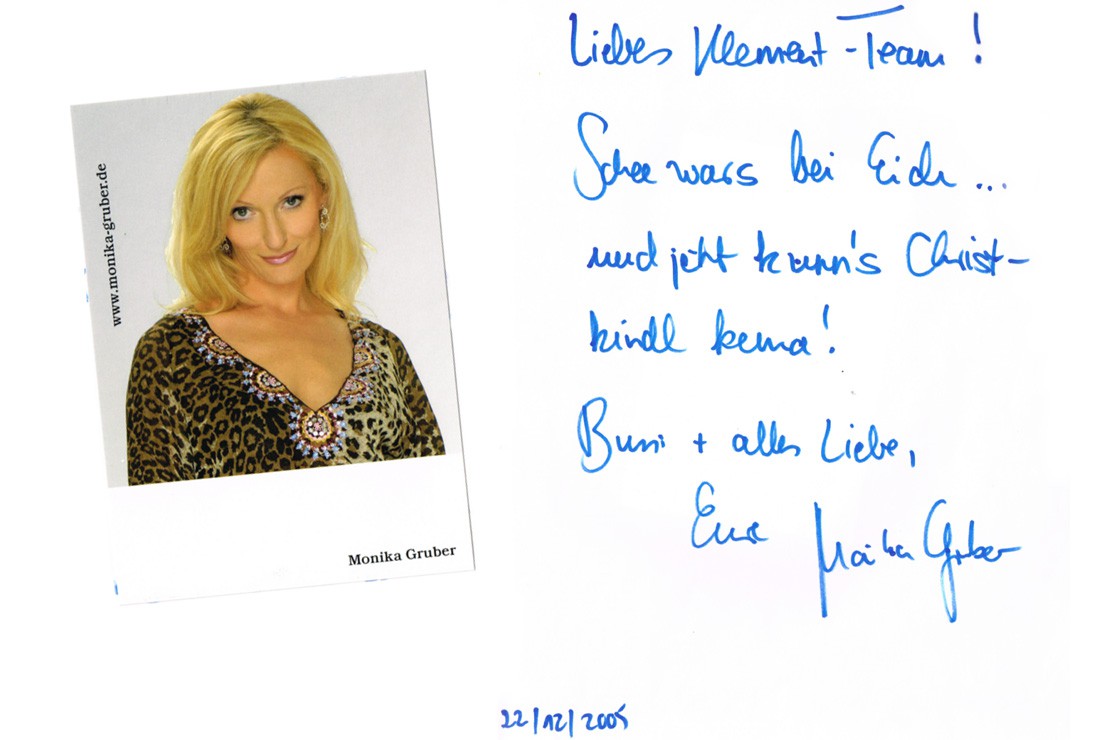 www.monika-gruber.de
Monika Gruber
Liebes Klement-Team!
Schee wars bei Eich...
und jetzt kann's Christ-
kindl kema!
Bussi + alles Liebe,
Eure Monika Gruber
22/12/2005